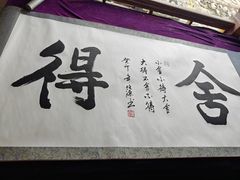 舍
小舍小得大舍
大得不舍不得
癸卯
得